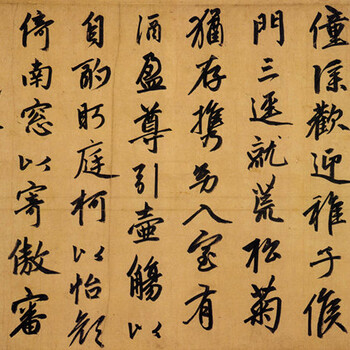 僮僕歡迎稚子候
門三逕就荒松菊
猶存携幼入室有
酒盈尊引壺觴以
自酌眄庭柯以怡顔
倚南窓以寄傲審